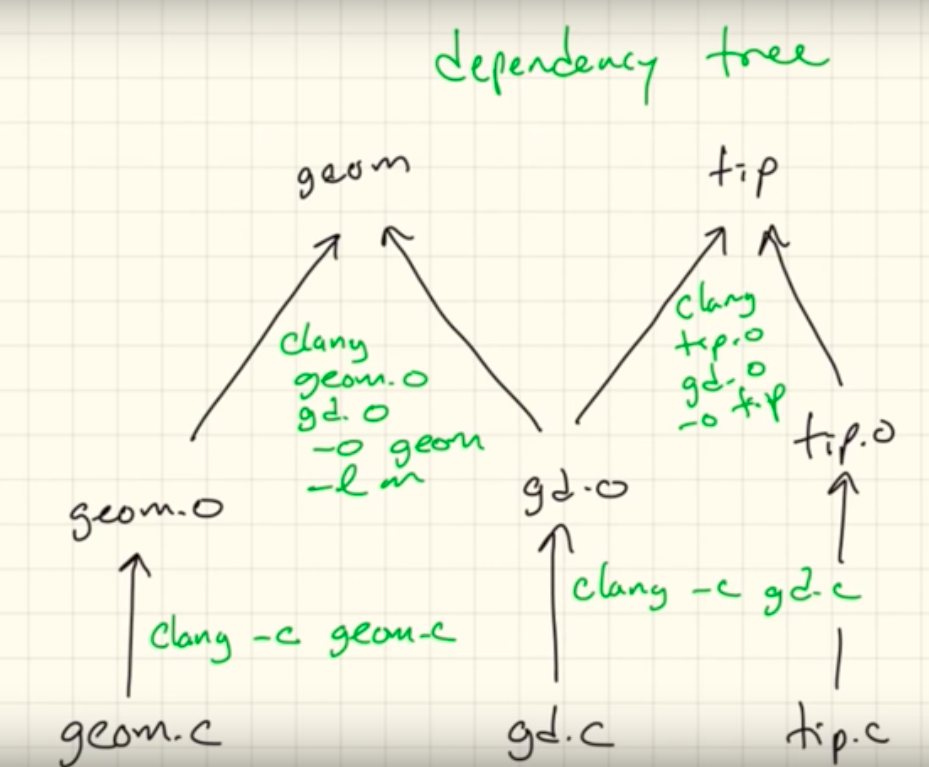 dependency tree
geom
tip
clang
geom.o
gd.o
-o geom
-lm
clang
tip.o
gd.o
-o tip
geom.o
gd.o
tip.o
clang -c geom.c
clang -c gd.c
geom.c
gd.c
tip.c